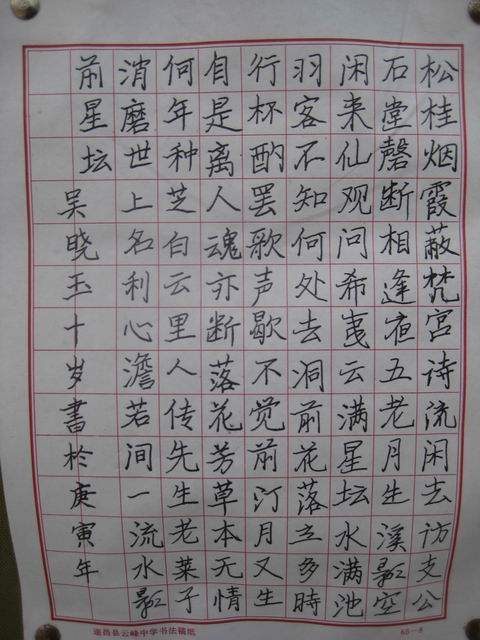 松桂烟霞蔽梵宫诗流闲去访支公
石堂磬断相逢夜五老月生溪影空
闲来仙观问希夷云满星坛水满池
羽客不知何处去洞前花落立多時
行杯酌罢歌声歇不觉前汀月又生
自是离人魂亦断落花芳草本无情
何年种芝白云里人传先生老莱子
消磨世上名利心澹若间一流水影
前星坛
吴晓玉十岁書於庚寅年
遂昌县云峰中学书法稿纸
65—8